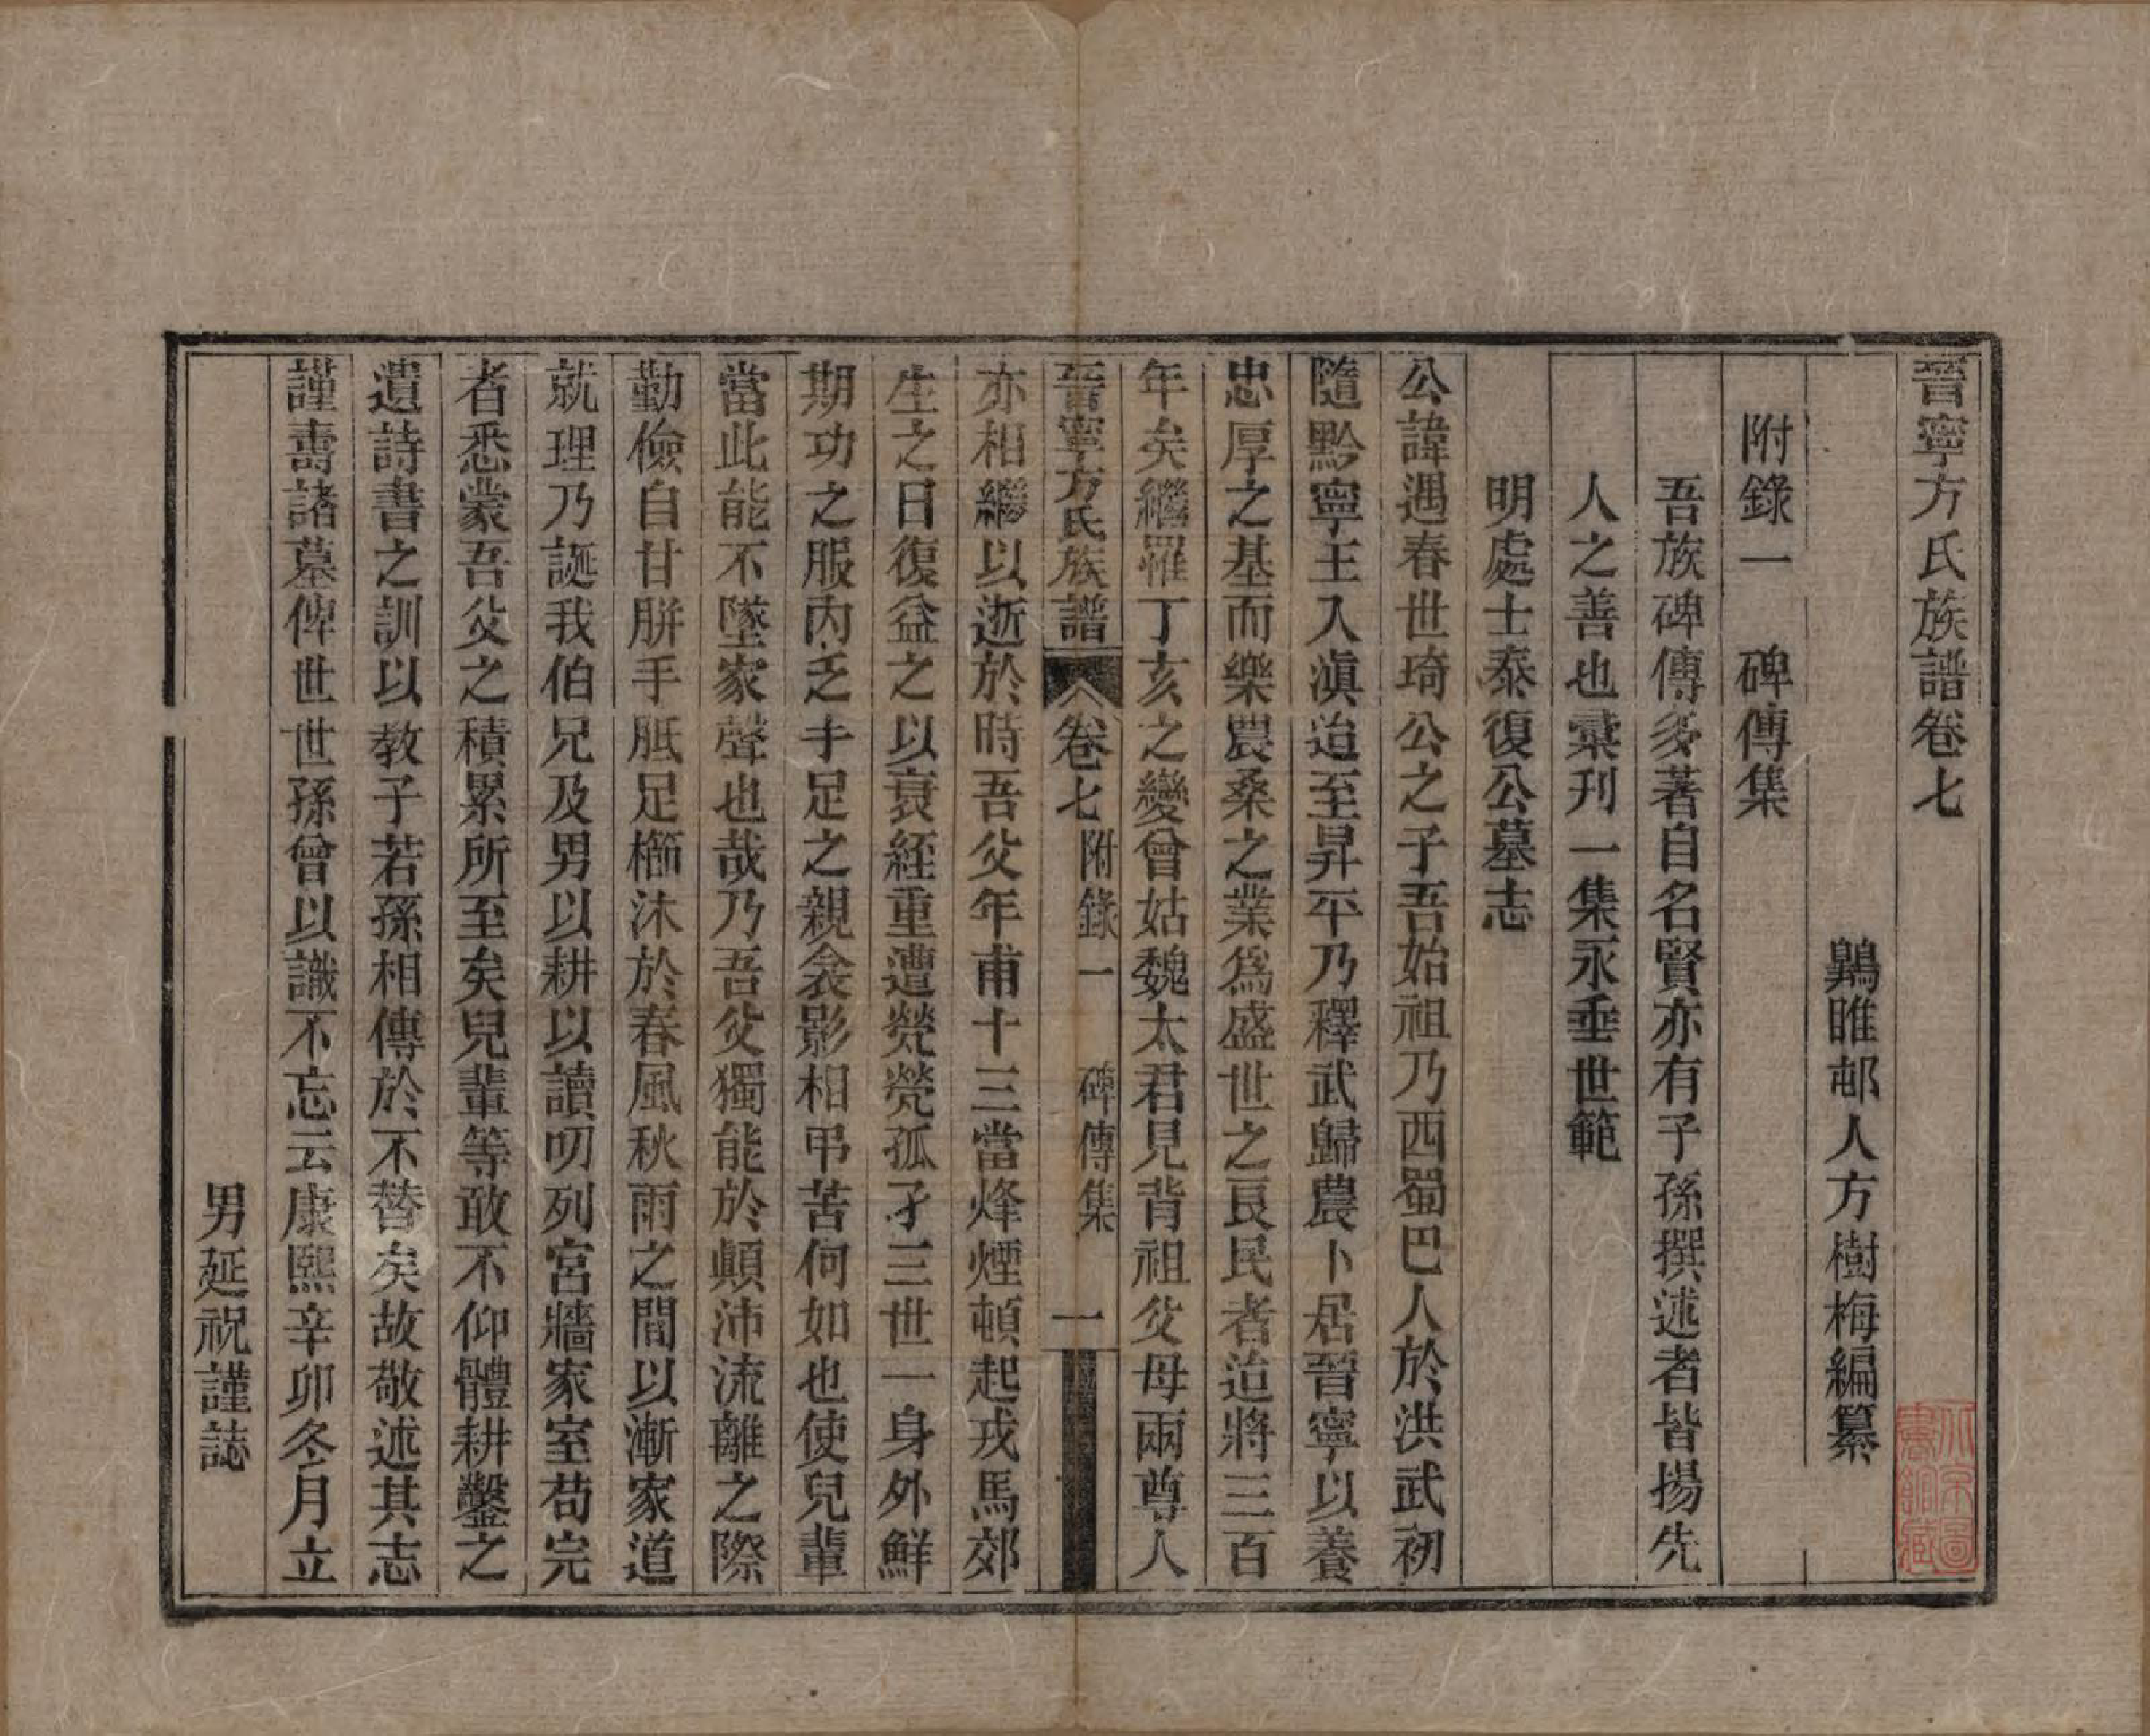 晉寧方氏族譜卷七
鷝睢邨人方樹梅編纂
附錄一　碑傳集
吾族碑傳多著自名賢亦有子孫撰述者皆揚先
人之善也彙刊一集永垂世範
明處士泰復公墓志
公諱遇春世琦公之子吾始祖乃西蜀巴人於洪武初
隨黔寧王入滇迨至昇平乃釋武歸農卜居晉寧以養
忠厚之基而樂農桑之業爲盛世之良民者迨將三百
年矣繼罹丁亥之變曾姑魏太君見背祖父母兩尊人
晉寧方氏族譜　卷七　附錄一　碑傳集　一
亦相繼以逝於時吾父年甫十三當烽煙頓起戎馬郊
生之日復益之以衰絰重遭煢煢孤孑三世一身外鮮
期功之服內乏手足之親衾影相弔苦何如也使兒輩
當此能不墜家聲也哉乃吾父獨能於顛沛流離之際
勤儉自甘胼手胝足櫛沐於春風秋雨之間以漸家道
就理乃誕我伯兄及男以耕以讀叨列宮牆家室苟完
者悉蒙吾父之積累所至矣兒輩等敢不仰體耕鑿之
遺詩書之訓以教子若孫相傳於不替矣故敬述其志
謹壽諸墓俾世世孫曾以識不忘云康熙辛卯冬月立
男延祝謹誌